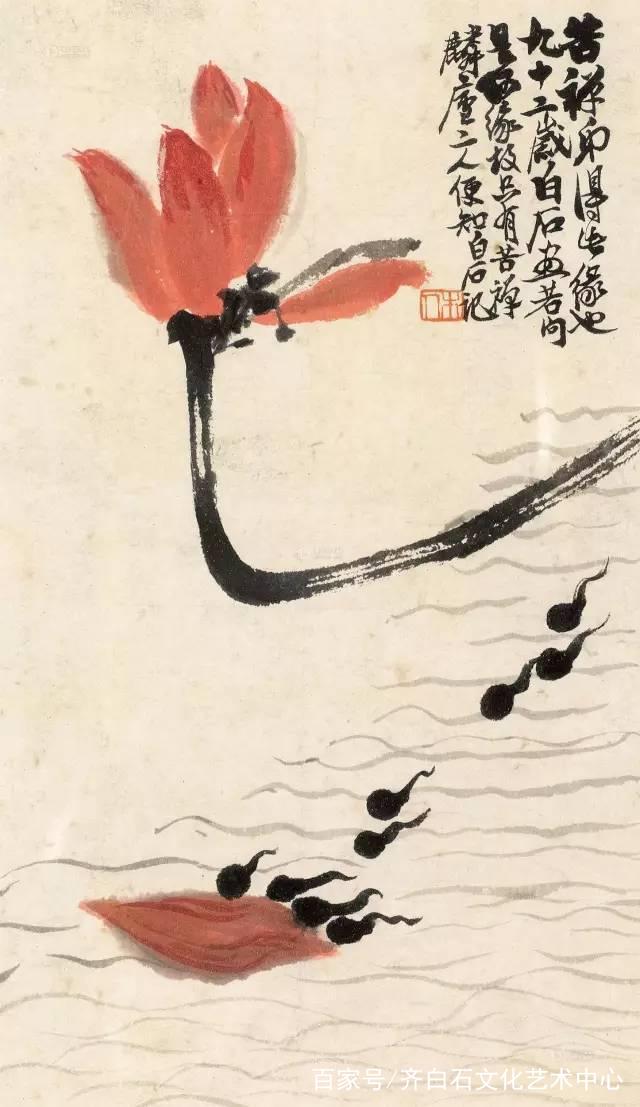 苦禪弟得此緣也
九十二歲白石畫若問
是何緣故只有苦禪
麟廬二人便知白石記
木人
百家号/齐白石文化艺术中心